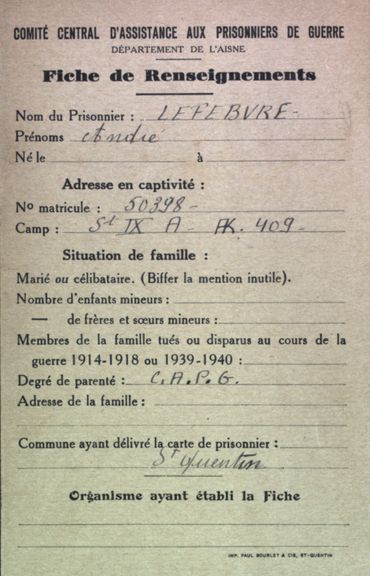 COMITÉ CENTRAL D'ASSISTANCE AUX PRISONNIERS DE GUERRE
DÉPARTEMENT DE L'AISNE
Fiche de Renseignements
Nom du Prisonnier : LEFEBVRE-
Prénoms André
Né le à
Adresse en captivité :
No matricule : 50398-
Camp : St IX A - AK. 409-
Situation de famille :
Marié ou célibataire. (Biffer la mention inutile).
Nombre d'enfants mineurs :
— de frères et sœurs mineurs :
Membres de la famille tués ou disparus au cours de la
guerre 1914-1918 ou 1939-1940 :
Degré de parenté : C.A.P.G.
Adresse de la famille :
Commune ayant délivré la carte de prisonnier :
St Quentin
Organisme ayant établi la Fiche
IMP. PAUL BOURLET & CIE, ST-QUENTIN